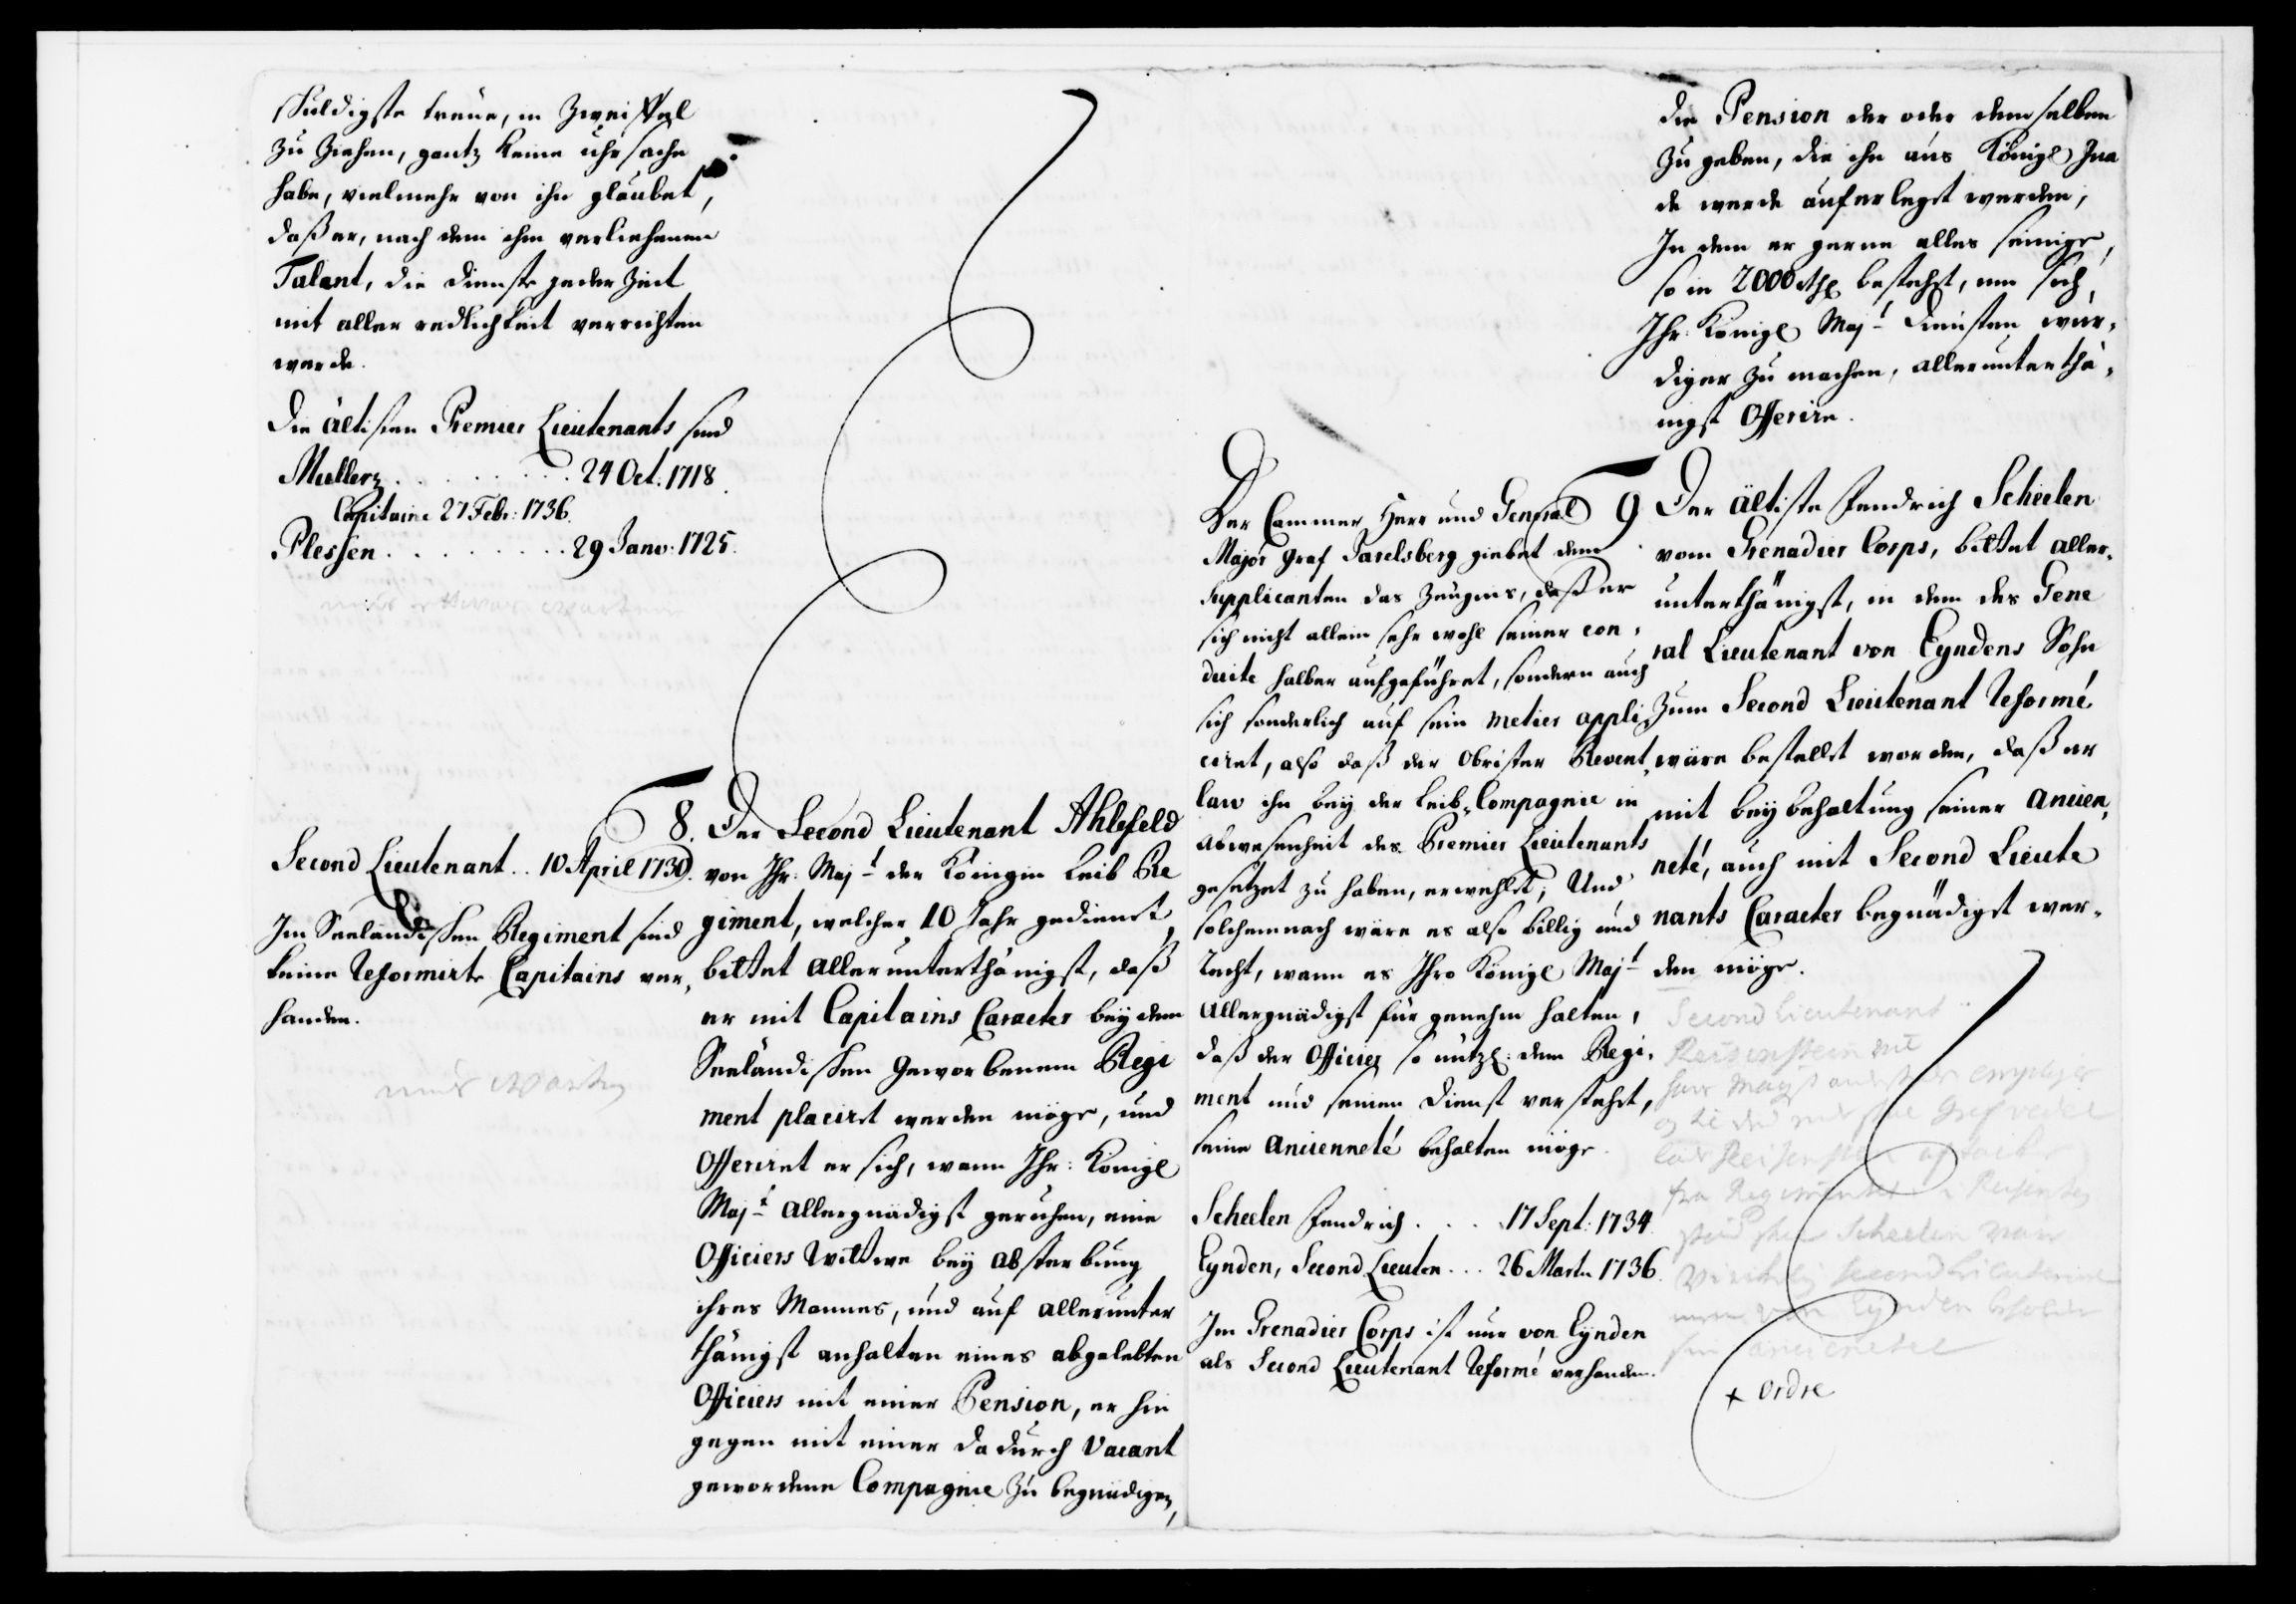 schuldigste treue, in Zweiffel
zu Ziehen, gantz keine uhrsache
habe, vielmehr von ihn glaubet,
daß er, nach dem ihm verliehenen
Talent, die Dienste jeder Zeit
mit aller redlichkeit verrichten
werde.
Die ältisten Premier Lieutenants sind
Mullerz . . . . . . . . . 24 Oct. 1718.
Capitaine 27 Febr: 1736.
Plessen . . . . . . . . . 29 Janv: 1725.
warten
Second Lieutenant . . 10 April 1730.
Im Seeländischen Regiment sind
keine Reformirte Capitains ver,
handen.
8. Der Second Lieutenant Ahlefeld
von Ihr: Majt der Königin Leib Re
giment, welcher 10 Jahr gedienet,
bittet allerunterthänigst, daß
er mit Capitains Caracter bey dem
Seeländischen Geworbenem Regi
ment placiret werden möge, und
Offeriret er sich, wann Ihr: Königl
Majt allergnädigst geruhen, eine
Officiers Wittwe bey absterbung
ihres Mannes, und auf allerunter
thänigst anhalten eines abgelebten
Officiers mit einer Pension, er hin
gegen mit einer dadurch Vacant
gewordene Compagnie zu begnädigen,
die Pension der oder demselben
zu geben, die ihn aus Königl Gna
de werde auferlegt werden,
In dem er gerne alles seinige,
so in 2000 Rthl bestehet, um sich,
Ihr: Königl Majt Diensten wür,
diger zu machen, allerunterthä,
nigst Offerire.
Der Cammer Herr und General
Major Graf Larelsberg giebet dem
Supplicanten das Zeugnis, daß er
sich nicht allein sehr wohl seiner con,
duite halber aufgeführet, sondern auch
sich sonderlich auf sein metier appli
ciret, also daß der Obrister Revent,
law ihn bey der Leib-Compagnie in
abwesenheit des Premier Lieutenants
gesetzet zu haben, erwehlet; Und
solchemnach wäre es also billig und
Recht, wann es Ihro Königl Majt
Allergnädigst für genehm halten,
daß der Officier so nützl: dem Regi,
ment und seinen Dienst verstehet,
seine Ancienneté behalten möge.
Scheelen Fendrich . . . . 17 Sept: 1734.
Eynden, Second Lieuten . . . 26 Martz 1736.
Im Grenadier Corps ist nur von Eynden
als Second Lieutenant Reformé verhanden.
9 Der ältiste Fendrich Scheelen
vom Grenadier Corps, bittet aller,
unterthänigst, in dem des Gene
ral Lieutenant von Eyndens Sohn
zum Second Lieutenant Reformé
wäre bestellt worden, daß er
mit beybehaltung seiner ancien,
neté, auch mit Second Lieute
nants Caracter begnädiget wer,
den möge.
Second Lieutenant
fra Regimentet
Scheelen
Second Lieutenant
Eynden
x ordre